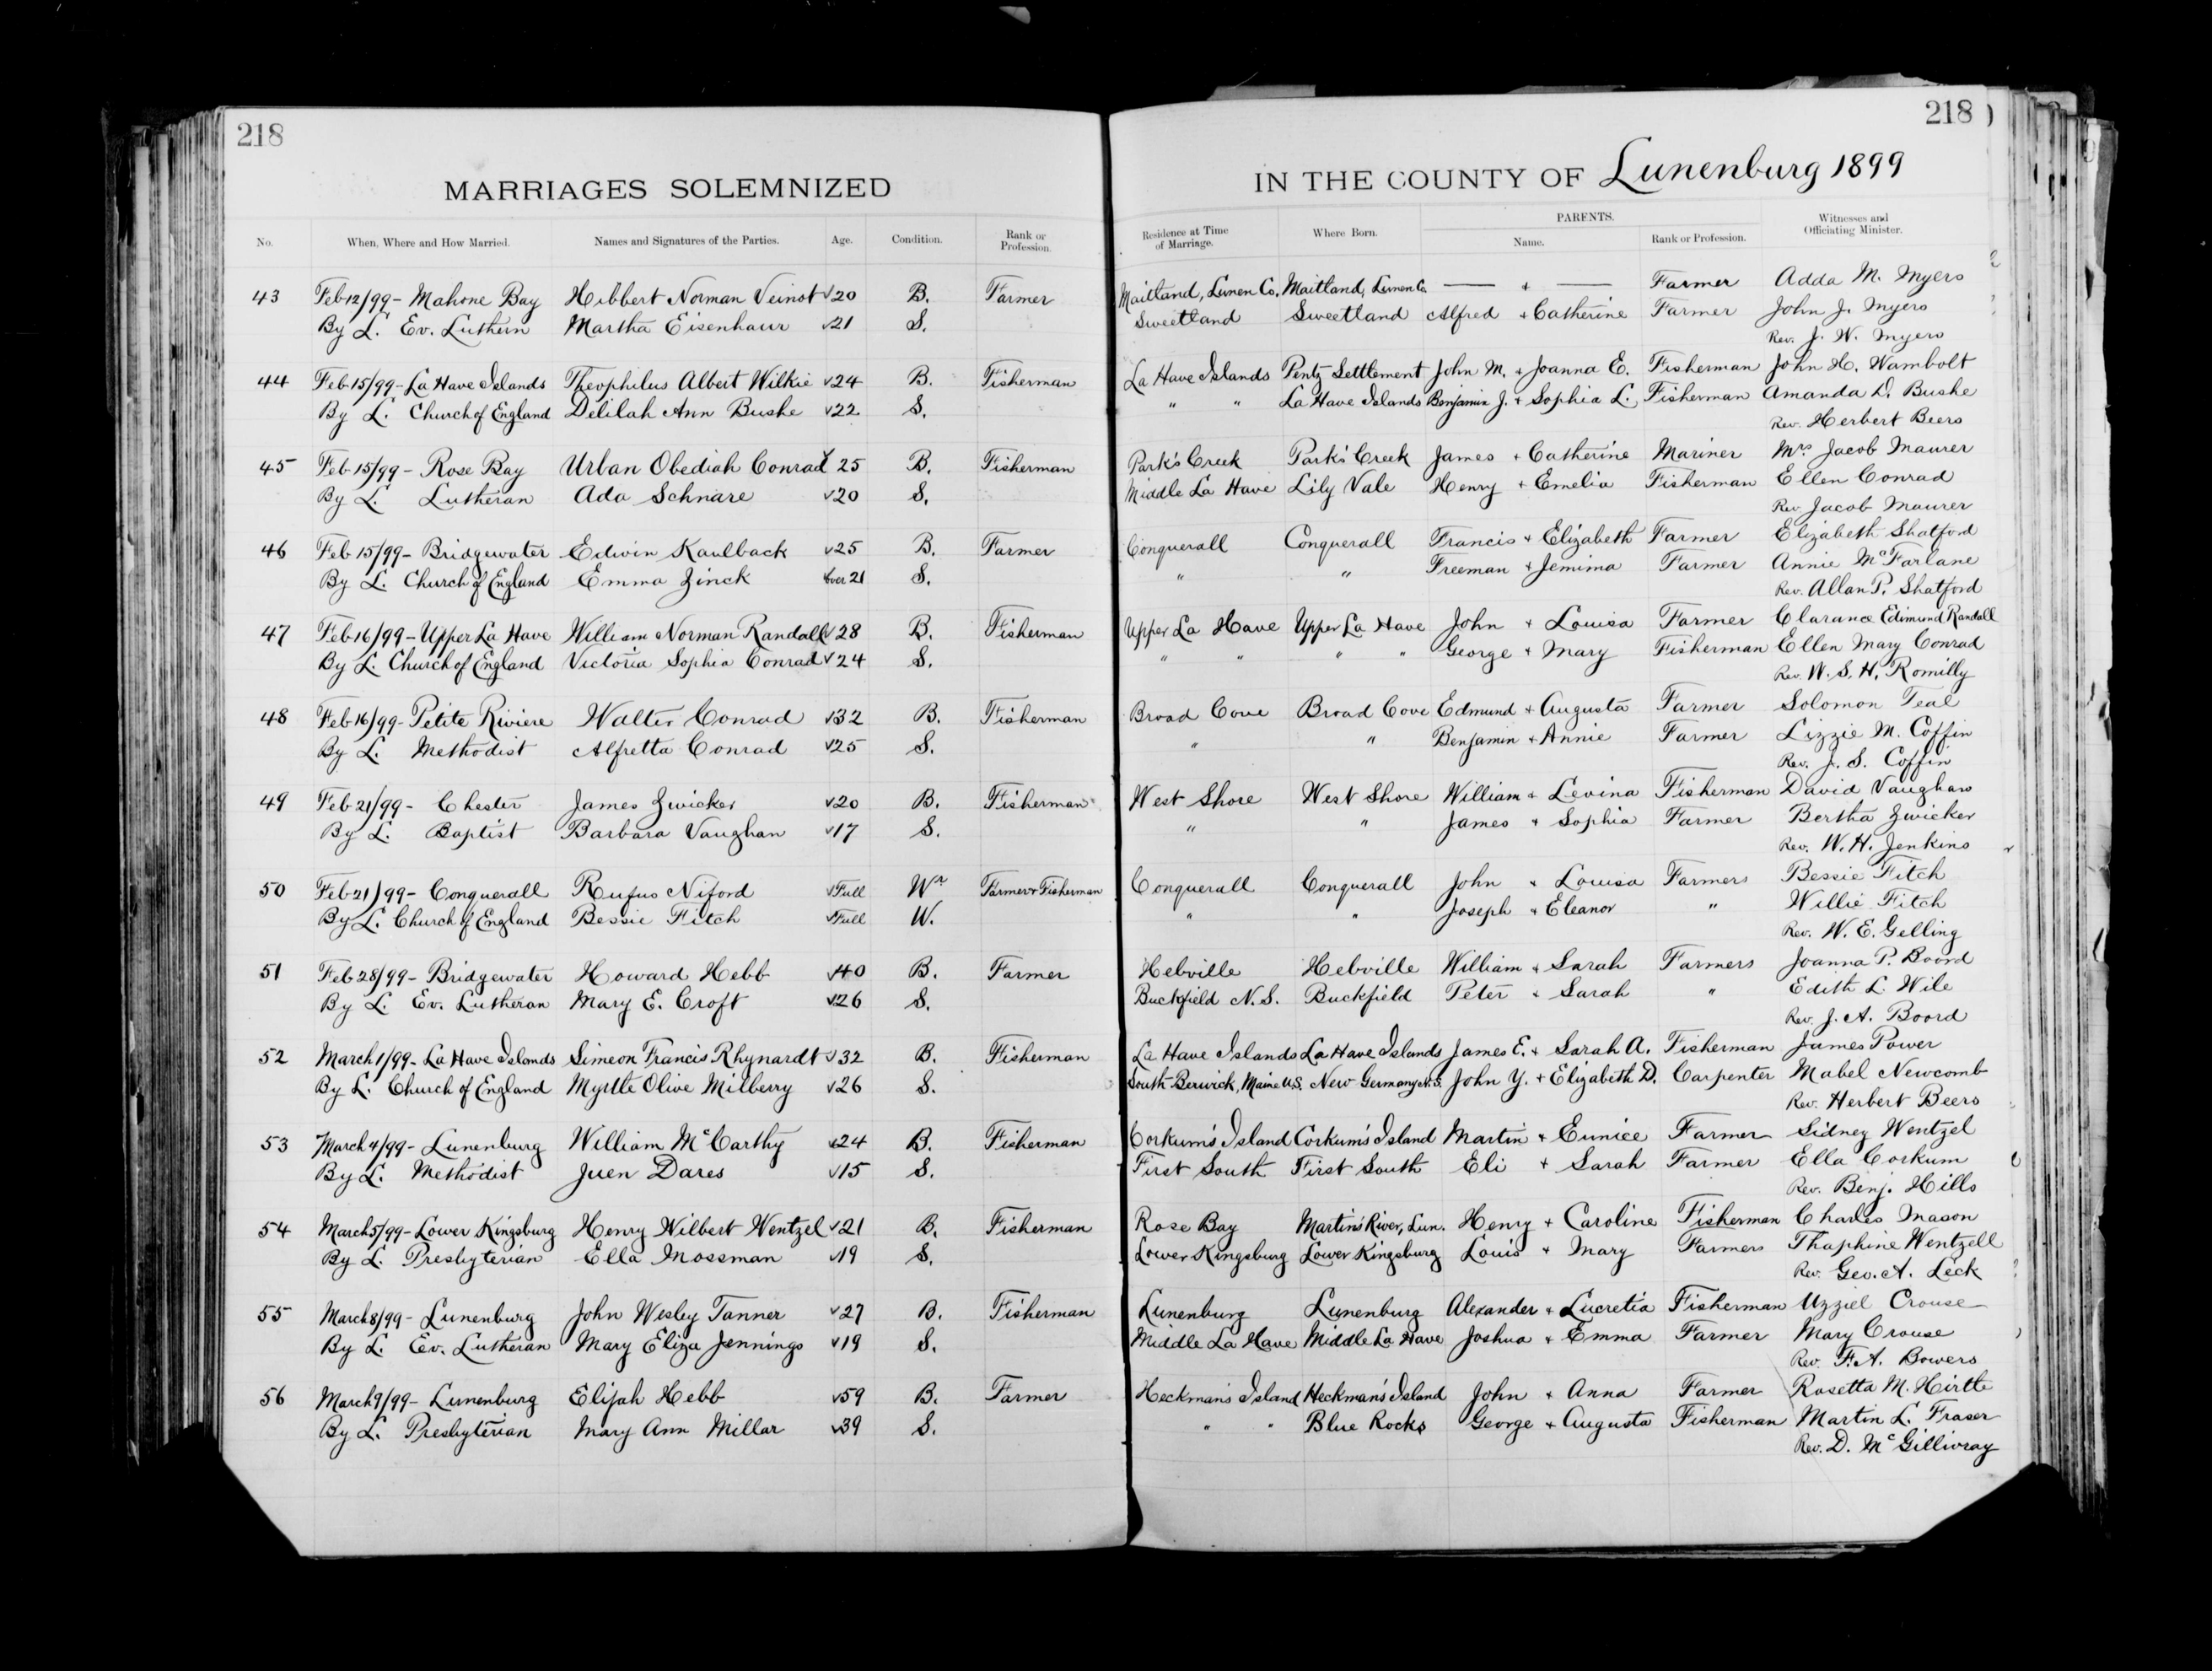 218
MARRIAGES SOLEMNIZED
No. When, Where and How Married. Names and Signatures of the Parties. Age. Condition. Rank or Profession.
43 Feb 12/99 - Mahone Bay Hibbert Norman Veinot 20 B. Farmer
By L. Ev. Luthern Martha Eisenhaur 21 S.
44 Feb 15/99 - La Have Islands Theophilus Albert Wilkie 24 B. Fisherman
By L. Church of England Delilah Ann Bushe 22 S.
45 Feb 15/99 - Rose Bay Urban Obediah Conrad 25 B. Fisherman
By L. Lutheran Ada Schnare 20 S.
46 Feb 15/99 - Bridgewater Edwin Kaulback 25 B. Farmer
By L. Church of England Emma Zinck over 21 S.
47 Feb 16/99 - Upper La Have William Norman Randall 28 B. Fisherman
By L. Church of England Victoria Sophia Conrad 24 S.
48 Feb 16/99 - Petite Riviere Walter Conrad 32 B. Fisherman
By L. Methodist Alfretta Conrad 25 S.
49 Feb 21/99 - Chester James Zwicker 20 B. Fisherman
By L. Baptist Barbara Vaughan 17 S.
50 Feb 21/99 - Conquerall Rufus Niford Full Wr Farmer & Fisherman
By L. Church of England Bessie Fitch Full W.
51 Feb 28/99 - Bridgewater Howard Hebb 40 B. Farmer
By L. Ev. Lutheran Mary E. Croft 26 S.
52 March 1/99 - La Have Islands Simeon Francis Rhynardt 32 B. Fisherman
By L. Church of England Myrtle Olive Milberry 26 S.
53 March 4/99 - Lunenburg William McCarthy 24 B. Fisherman
By L. Methodist Juen Dares 15 S.
54 March 5/99 - Lower Kingsburg Henry Wilbert Wentzel 21 B. Fisherman
By L. Presbyterian Ella Mossman 19 S.
55 March 8/99 - Lunenburg John Wesley Tanner 27 B. Fisherman
By L. Ev. Lutheran Mary Eliza Jennings 19 S.
56 March 9/99 - Lunenburg Elijah Hebb 59 B. Farmer
By L. Presbyterian Mary Ann Millar 39 S.
218
IN THE COUNTY OF Lunenburg 1899
Residence at Time of Marriage. Where Born. PARENTS. Name. Rank or Profession. Witnesses and Officiating Minister.
Maitland, Lunen Co. Maitland, Lunen Co. — + — Farmer Adda M. Myers
Sweetland Sweetland Alfred + Catherine Farmer John J. Myers
Rev. J. W. Myers
La Have Islands Pentz Settlement John M. + Joanna E. Fisherman John H. Wambolt
" " La Have Islands Benjamin J. + Sophia L. Fisherman Amanda D. Bushe
Rev. Herbert Beers
Park's Creek Park's Creek James + Catherine Mariner Mrs Jacob Maurer
Middle La Have Lily Vale Henry + Emelia Fisherman Ellen Conrad
Rev. Jacob Maurer
Conquerall Conquerall Francis + Elizabeth Farmer Elizabeth Shatford
" " Freeman + Jemima Farmer Annie McFarlane
Rev. Allan P. Shatford
Upper La Have Upper La Have John + Louisa Farmer Clarance Edimund Randall
" " " " George + Mary Fisherman Ellen Mary Conrad
Rev. W. S. H. Romilly
Broad Cove Broad Cove Edmund + Augusta Farmer Solomon Teal
" " Benjamin + Annie Farmer Lizzie M. Coffin
Rev. J. S. Coffin
West Shore West Shore William + Levina Fisherman David Vaughan
" " James + Sophia Farmer Bertha Zwicker
Rev. W. H. Jenkins
Conquerall Conquerall John + Louisa Farmers Bessie Fitch
" " Joseph + Eleanor " Willie Fitch
Rev. W. E. Gelling
Hebville Hebville William + Sarah Farmers Joanna P. Boord
Buckfield N.S. Buckfield Peter + Sarah " Edith L. Wile
Rev. J. A. Boord
La Have Islands La Have Islands James E. + Sarah A. Fisherman James Power
South Berwick, Maine U.S. New Germany N.S. John Y. + Elizabeth D. Carpenter Mabel Newcomb
Rev. Herbert Beers
Corkum's Island Corkum's Island Martin + Eunice Farmer Sidney Wentzel
First South First South Eli + Sarah Farmer Ella Corkum
Rev. Benj. Hills
Rose Bay Martin's River, Lun. Henry + Caroline Fisherman Charles Mason
Lower Kingsburg Lower Kingsburg Louis + Mary Farmers Thaphine Wentzell
Rev. Geo. A. Leck
Lunenburg Lunenburg Alexander + Lucretia Fisherman Uzziel Crouse
Middle La Have Middle La Have Joshua + Emma Farmer Mary Crouse
Rev. F. A. Bowers
Heckman's Island Heckman's Island John + Anna Farmer Rosetta M. Hirtle
" " Blue Rocks George + Augusta Fisherman Martin L. Fraser
Rev. D. McGillivray